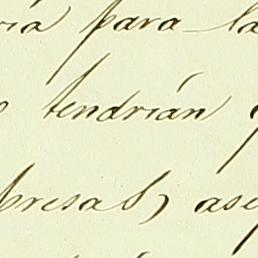 ria para la
tendrían
presas, ase